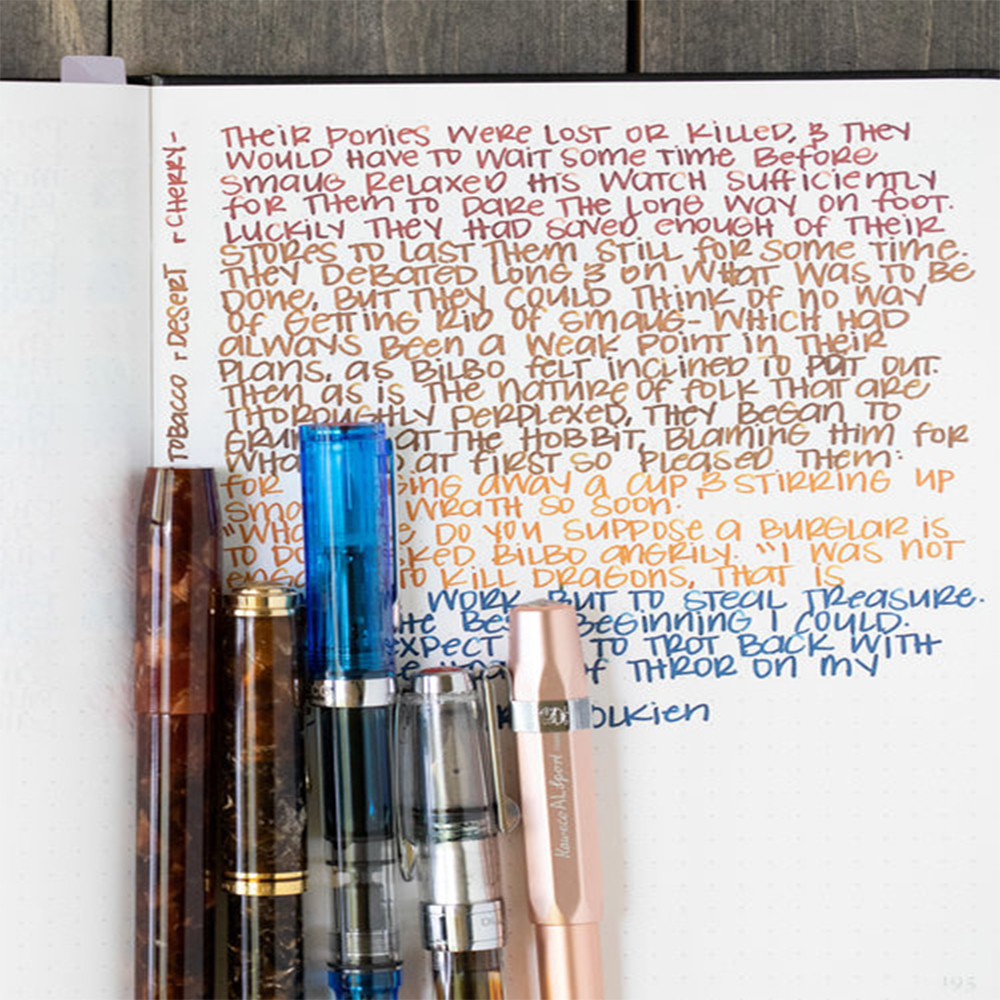 THEIR PONIES WERE LOST OR KILLED, & THEY
WOULD HAVE TO WAIT SOME TIME BEFORE
SMAUG RELAXED HIS WATCH SUFFICIENTLY
FOR THEM TO DARE THE LONG WAY ON FOOT.
LUCKILY THEY HAD SAVED ENOUGH OF THEIR
STORES TO LAST THEM STILL FOR SOME TIME.
THEY DEBATED LONG & ON WHAT WAS TO BE
DONE, BUT THEY COULD THINK OF NO WAY
OF GETTING RID OF SMAUG- WHICH HAD
ALWAYS BEEN A WEAK POINT IN THEIR
PLANS, AS BILBO FELT INCLINED TO PUT OUT.
THEN AS IS THE NATURE OF FOLK THAT ARE
THOROUGHLY PERPLEXED, THEY BEGAN TO
AT THE HOBBIT, BLAMING HIM FOR
AT FIRST SO PLEASED THEM:
FOR AWAY A CUP, & STIRRING UP
WRATH SO SOON.
DO YOU SUPPOSE A BURGLAR IS
TO BILBO ANGRILY. "I WAS NOT
TO KILL DRAGONS, THAT IS
WORK, BUT TO STEAL TREASURE.
BEGINNING I COULD.
EXPECT TO TROT BACK WITH
OF THROR ON MY
OLKIEN
TOBACCO
DESERT
CHERRY-
Kaweco AL Sport
195